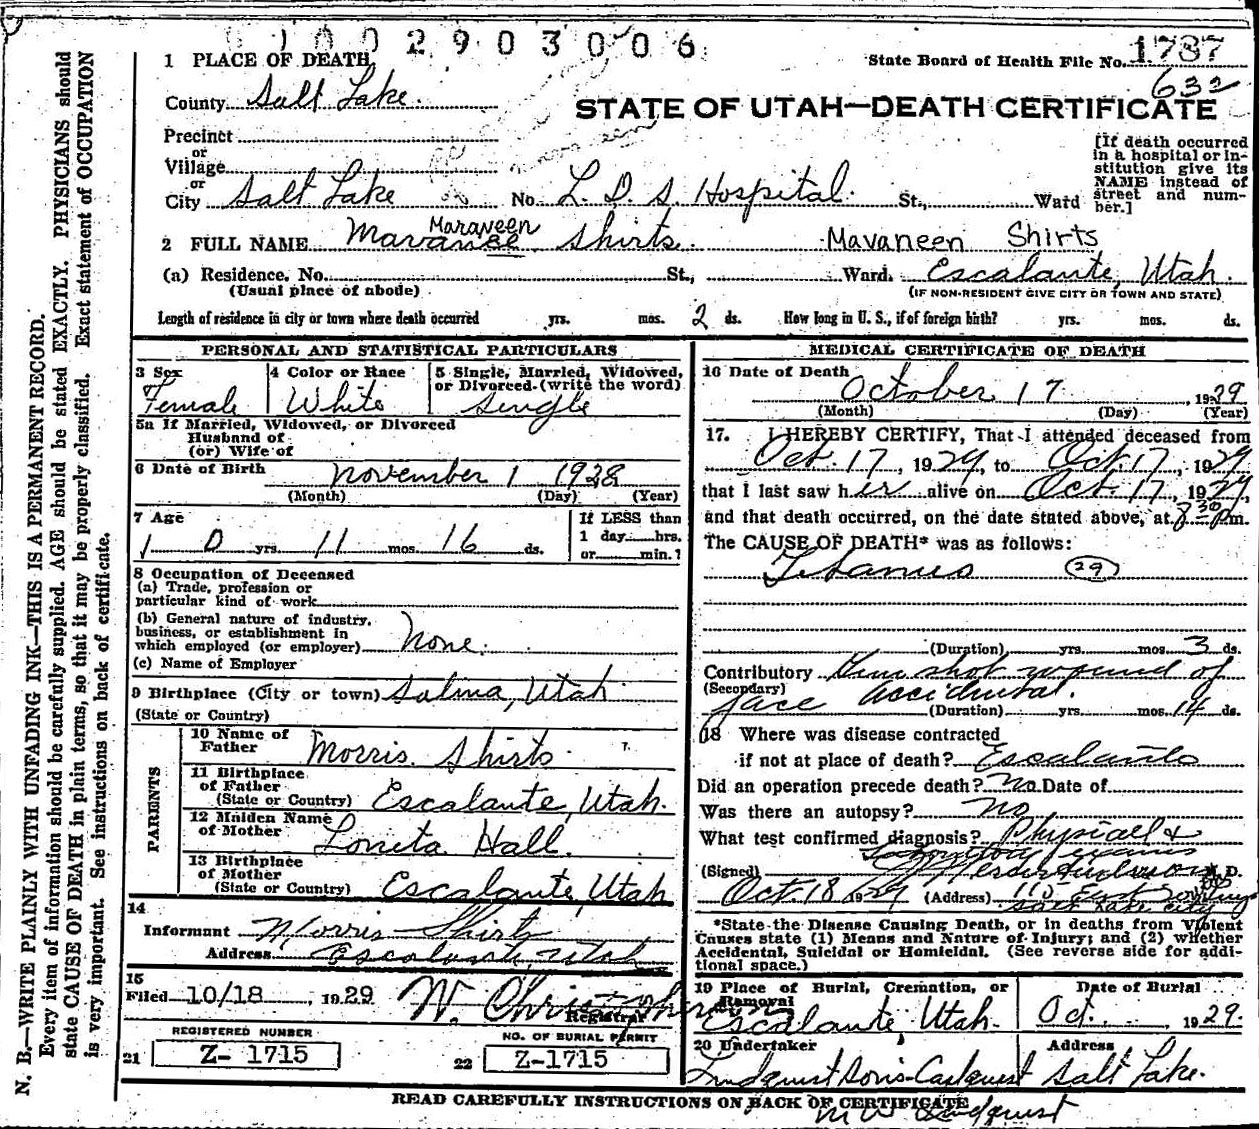 01002903006
1 PLACE OF DEATH
State Board of Health File No. 1737
632
County Salt Lake.
STATE OF UTAH—DEATH CERTIFICATE
Precinct
or
Village
or
City Salt Lake No. L. D. S. Hospital. St., Ward
[If death occurred
in a hospital or in-
stitution give its
NAME instead of
street and num-
ber.]
Maraveen
2 FULL NAME Shirts. Mavaneen Shirts
(a) Residence. No. St., Ward. Escalante, Utah.
(Usual place of abode) (IF NON-RESIDENT GIVE CITY OR TOWN AND STATE)
Length of residence in city or town where death occurred yrs. mos. 2 ds. How long in U. S., if of foreign birth? yrs. mos. ds.
PERSONAL AND STATISTICAL PARTICULARS
3 Sex Female
4 Color or Race White
5 Single, Married, Widowed,
or Divorced (write the word)
Single
5a If Married, Widowed, or Divorced
Husband of
(or) Wife of
6 Date of Birth November 1 1928
(Month) (Day) (Year)
7 Age
10 yrs. 11 mos. 16 ds.
If LESS than
1 day hrs.
or min.?
8 Occupation of Deceased
(a) Trade, profession or
particular kind of work
(b) General nature of industry,
business, or establishment in
which employed (or employer) None.
(c) Name of Employer
9 Birthplace (City or town) Salina, Utah
(State or Country)
PARENTS
10 Name of
Father Morris Shirts
11 Birthplace
of Father
(State or Country) Escalante, Utah.
12 Maiden Name
of Mother Loneta Hall.
13 Birthplace
of Mother
(State or Country) Escalante, Utah
14
Informant Morris Shirts
Address Escalante, Utah
15
Filed 10/18, 1929 W. Christopherson
Registrar
REGISTERED NUMBER
21 Z-1715
NO. OF BURIAL PERMIT
22 Z-1715
MEDICAL CERTIFICATE OF DEATH
16 Date of Death
October 17, 1929
(Month) (Day) (Year)
17. I HEREBY CERTIFY, That I attended deceased from
Oct. 17, 1929, to Oct. 17, 1929
that I last saw her alive on Oct. 17, 1929,
and that death occurred, on the date stated above, at 8:30 P.m.
The CAUSE OF DEATH* was as follows:
Tetanus (29)
(Duration) yrs. mos. 3 ds.
Contributory Gun shot wound of
(Secondary) face accidental.
(Duration) yrs. mos. 14 ds.
18 Where was disease contracted
if not at place of death? Escalante
Did an operation precede death? No Date of
Was there an autopsy? No
What test confirmed diagnosis? Physical &
Laboratory exams
(Signed) M. D.
Oct. 18 1929 (Address) 115 East
Salt Lake City
*State the Disease Causing Death, or in deaths from Violent
Causes state (1) Means and Nature of Injury; and (2) whether
Accidental, Suicidal or Homicidal. (See reverse side for addi-
tional space.)
19 Place of Burial, Cremation, or
Removal
Escalante, Utah.
Date of Burial
Oct. 1929.
20 Undertaker Address
Lindquist Sons-Carlquist Salt Lake.
READ CAREFULLY INSTRUCTIONS ON BACK OF CERTIFICATE
M W Lindquist
N. B.—WRITE PLAINLY WITH UNFADING INK—THIS IS A PERMANENT RECORD.
Every item of information should be carefully supplied. AGE should be stated EXACTLY. PHYSICIANS should
state CAUSE OF DEATH in plain terms, so that it may be properly classified. Exact statement of OCCUPATION
is very important. See instructions on back of certificate.